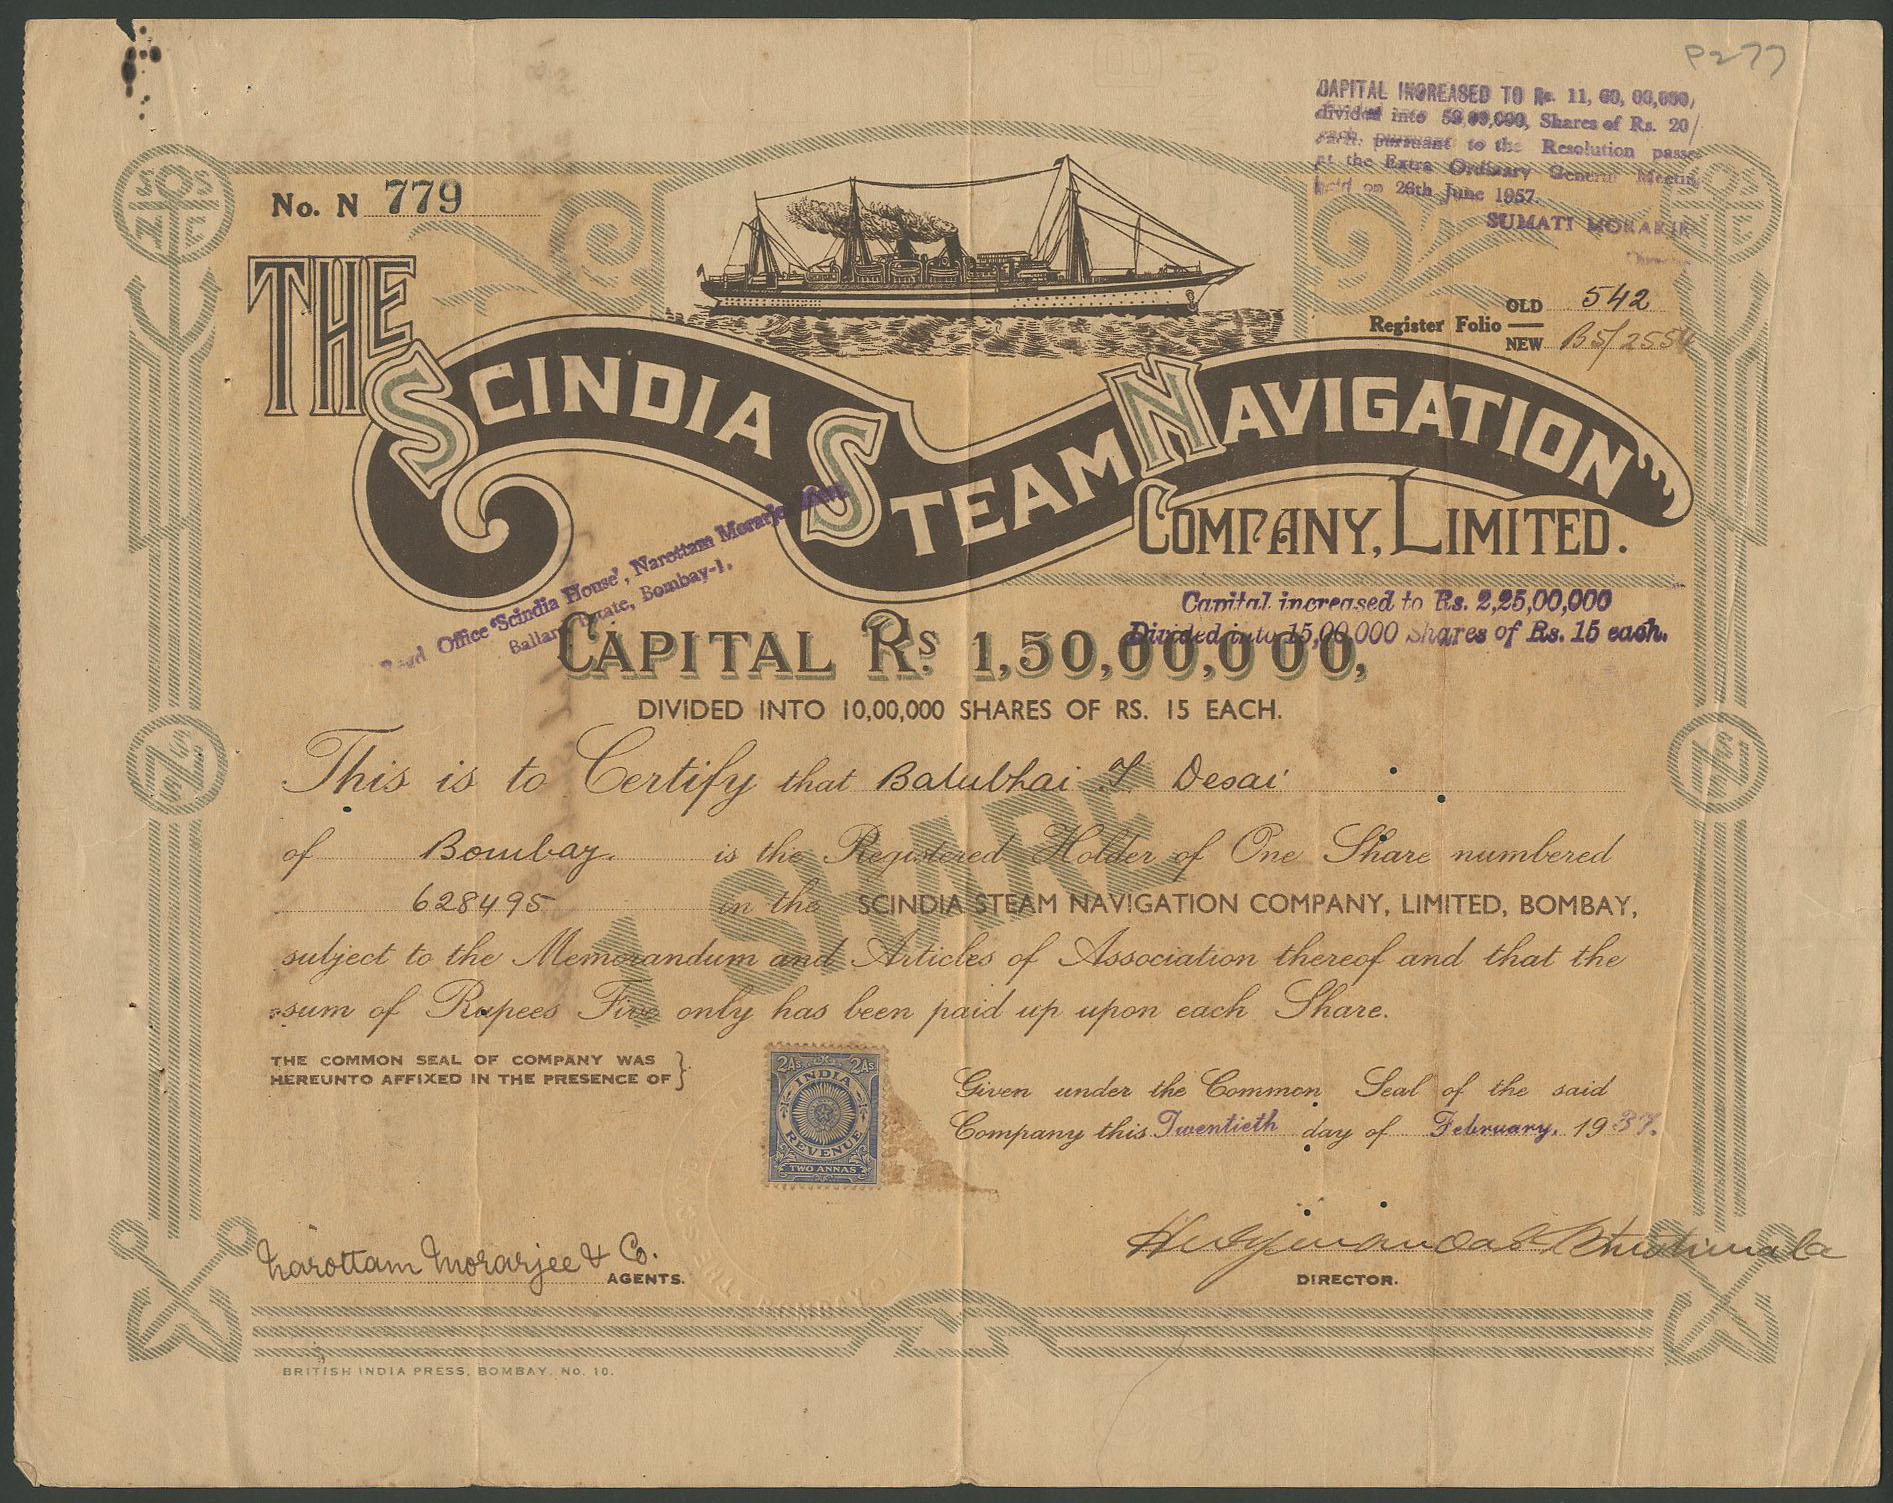 P277
CAPITAL INCREASED TO Rs. 11,00,00,000/
divided into Shares of Rs. 20/
each pursuant to the Resolution passe
at the Extra Ordinary General Meetin
held on 26th June 1957.
SUMATI MORARJE
No. N 779
Register Folio OLD 542
NEW B5/2554
THE
SCINDIA STEAM NAVIGATION
COMPANY, LIMITED.
Office 'Scindia House', Narottam Morarje
Ballar Estate, Bombay-1.
Capital increased to Rs. 2,25,00,000
Divided into 15,00,000 Shares of Rs. 15 each.
CAPITAL Rs. 1,50,00,000,
DIVIDED INTO 10,00,000 SHARES OF RS. 15 EACH.
This is to Certify that Balubhai T Desai
of Bombay. is the Registered Holder of One Share numbered
628495 in the SCINDIA STEAM NAVIGATION COMPANY, LIMITED, BOMBAY,
subject to the Memorandum and Articles of Association thereof and that the
sum of Rupees Five only has been paid up upon each Share.
1 SHARE
THE COMMON SEAL OF COMPANY WAS
HEREUNTO AFFIXED IN THE PRESENCE OF
2As. 2As.
INDIA
REVENUE
TWO ANNAS
Given under the Common Seal of the said
Company this Twentieth day of February. 1937.
Narottam Morarjee & Co.
AGENTS.
DIRECTOR.
BRITISH INDIA PRESS, BOMBAY. No. 10.